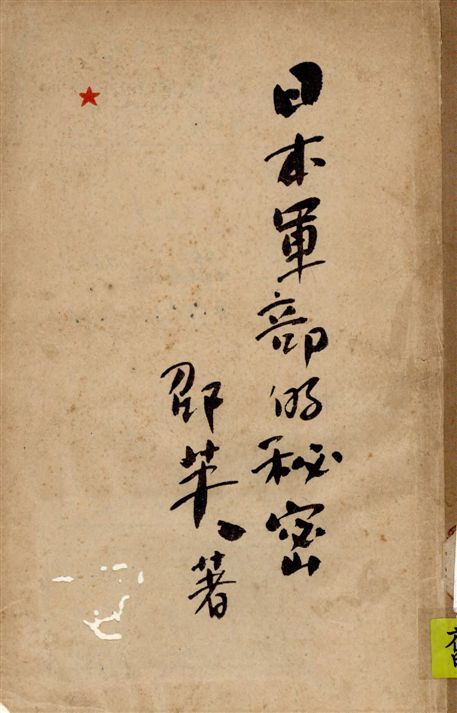 日本軍部的秘密
邵英著
舊